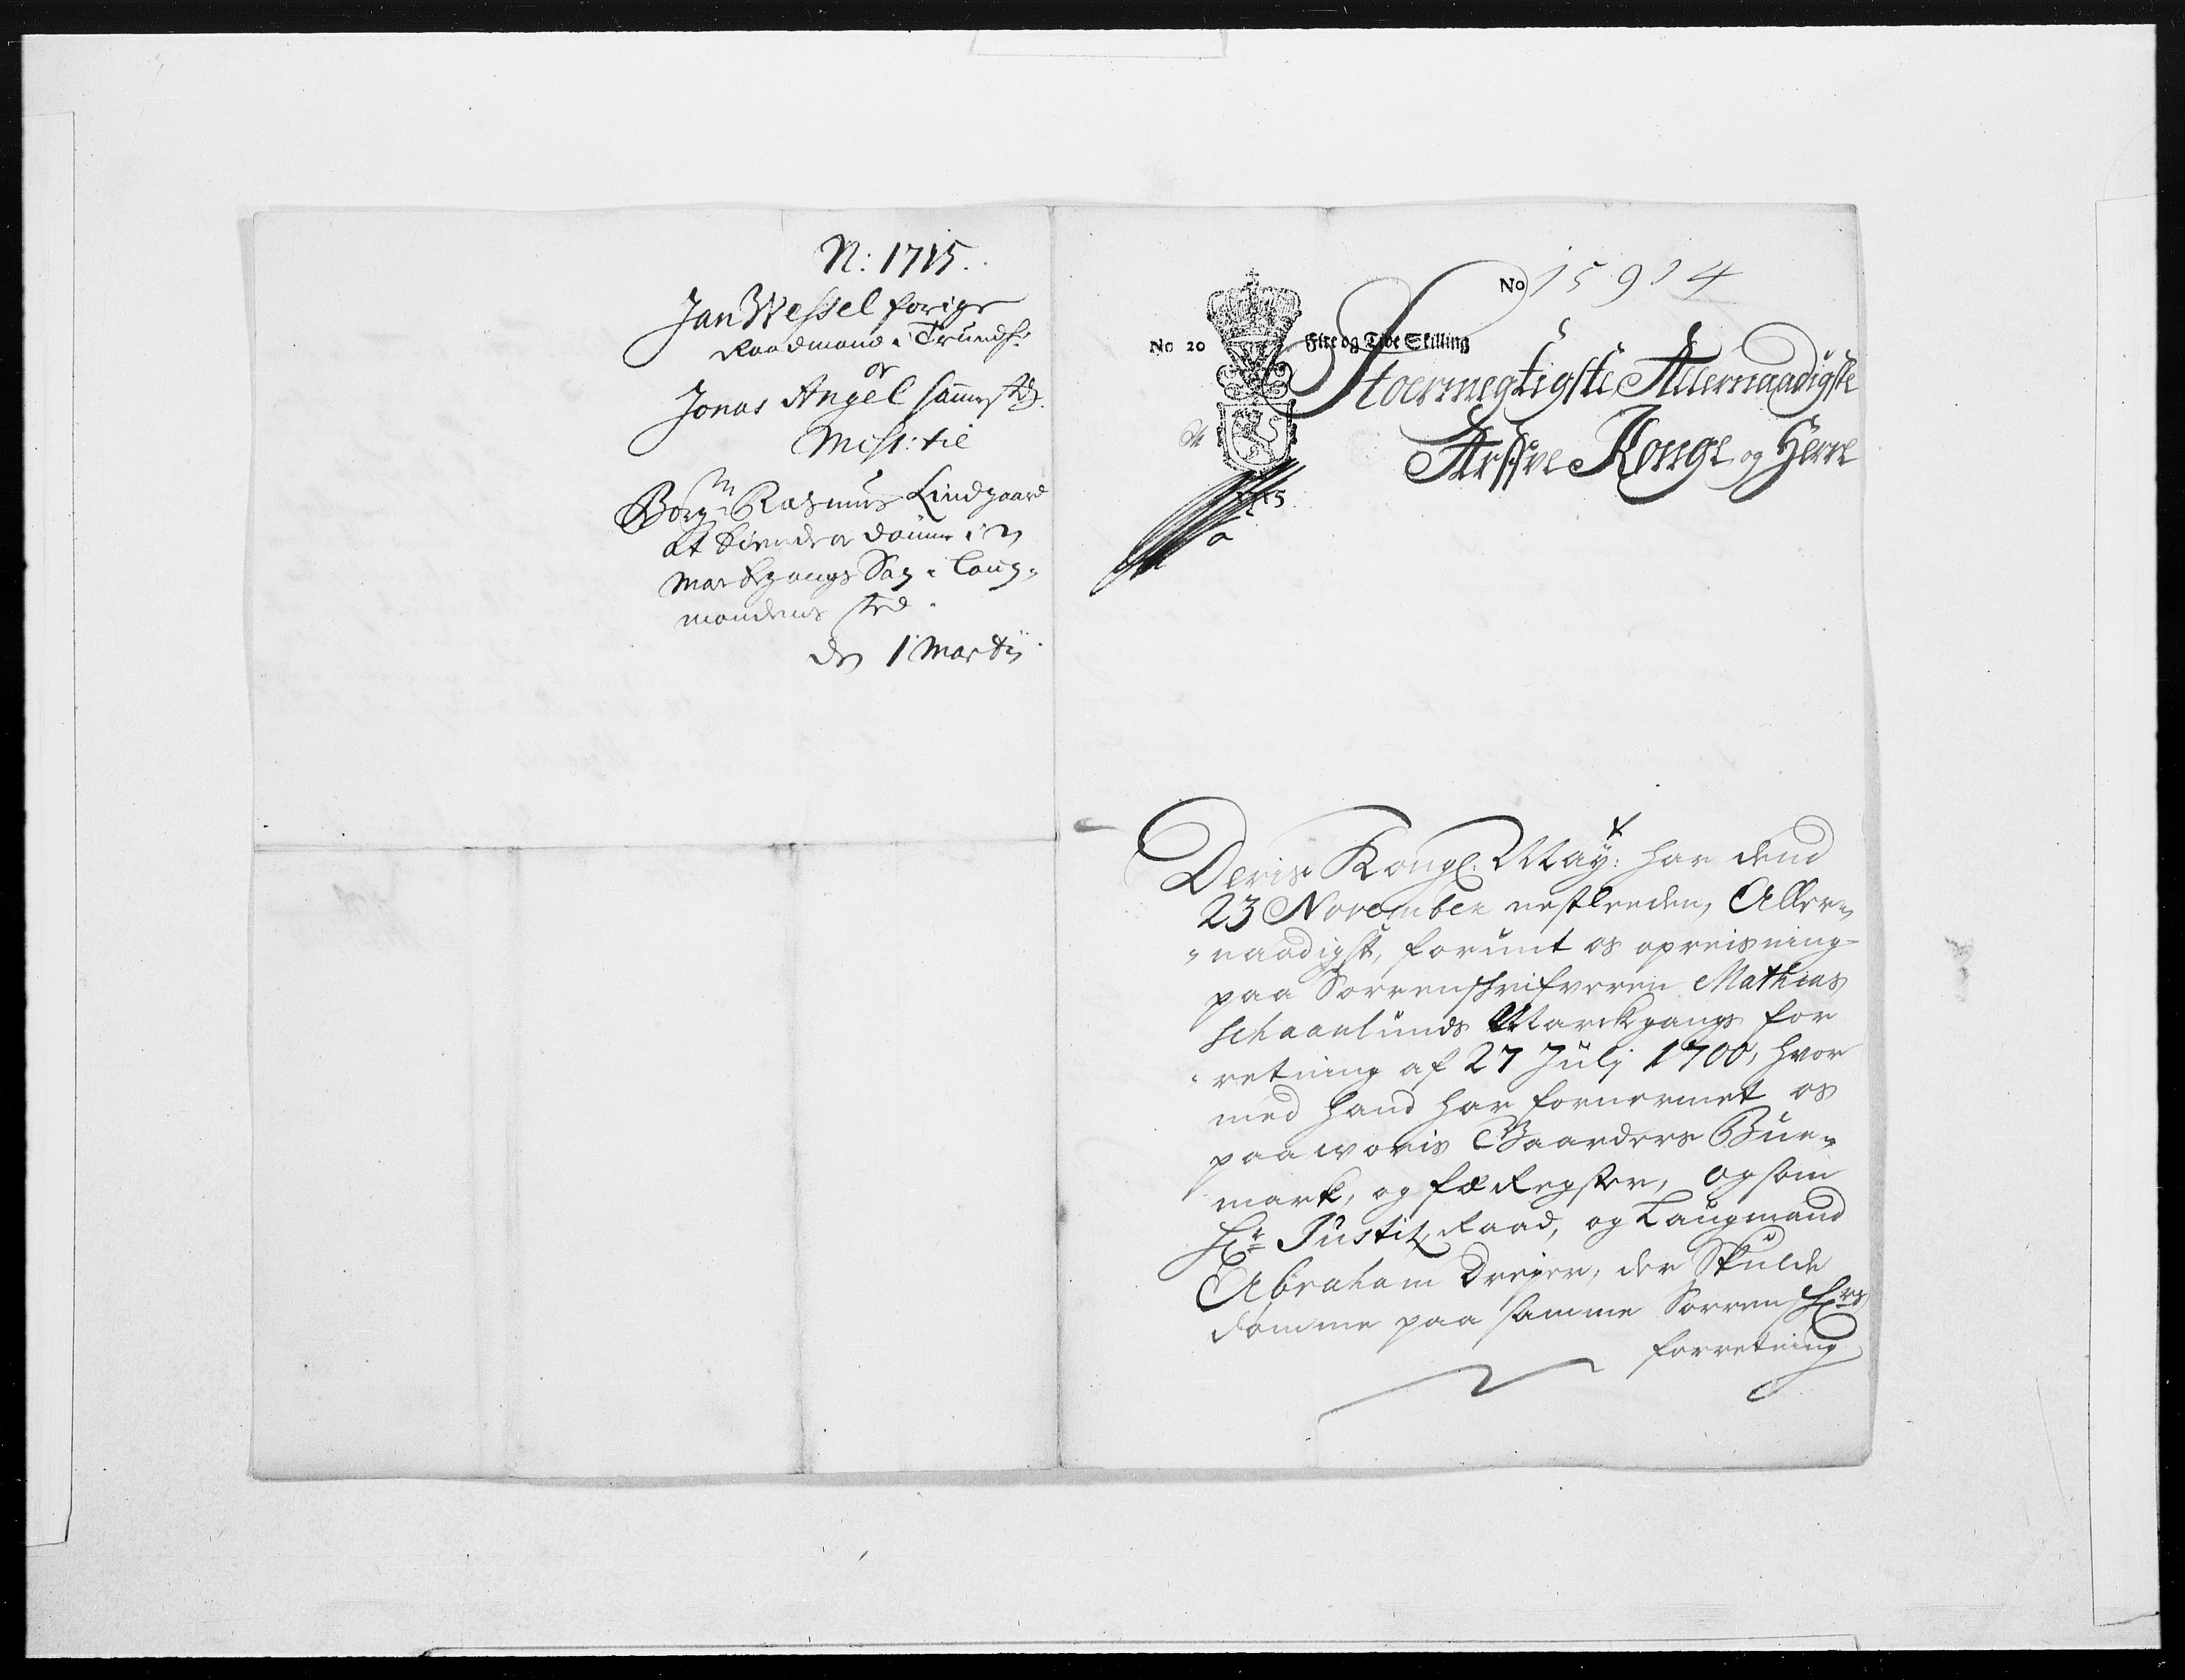 N: 1715.
Jan Wessel forige
Raadmand i Trundh:
og
Jonas Angel sammestd.
Miss: til
Borgm Rasmus Lindgaard
at kiende og dømme i en
Markgangs Sag i Laug-
mandens sted.
den 1 Martij
No 15914
No 20
Fire og Tive Skilling
Stoermegtigste, Allernaadigste
Arffve Konge og Herre
1715
Deris Kongl: May: har dend
23 November nestleeden, Aller-
naadigst, forunt os opreisning
paa Sorrenskrifveren Mathias
Schaanlunds Marckgangs for
retning af 27 Julj 1700, hvor
med hand har fornermet os
paa woris Gaarders Bue-
mark, og fæ Legster, og som
Hr Justitz Raad, og Laugmand
Abraham Dreyer, der Skulde
domme paa samme Sorrenskrs
forretning